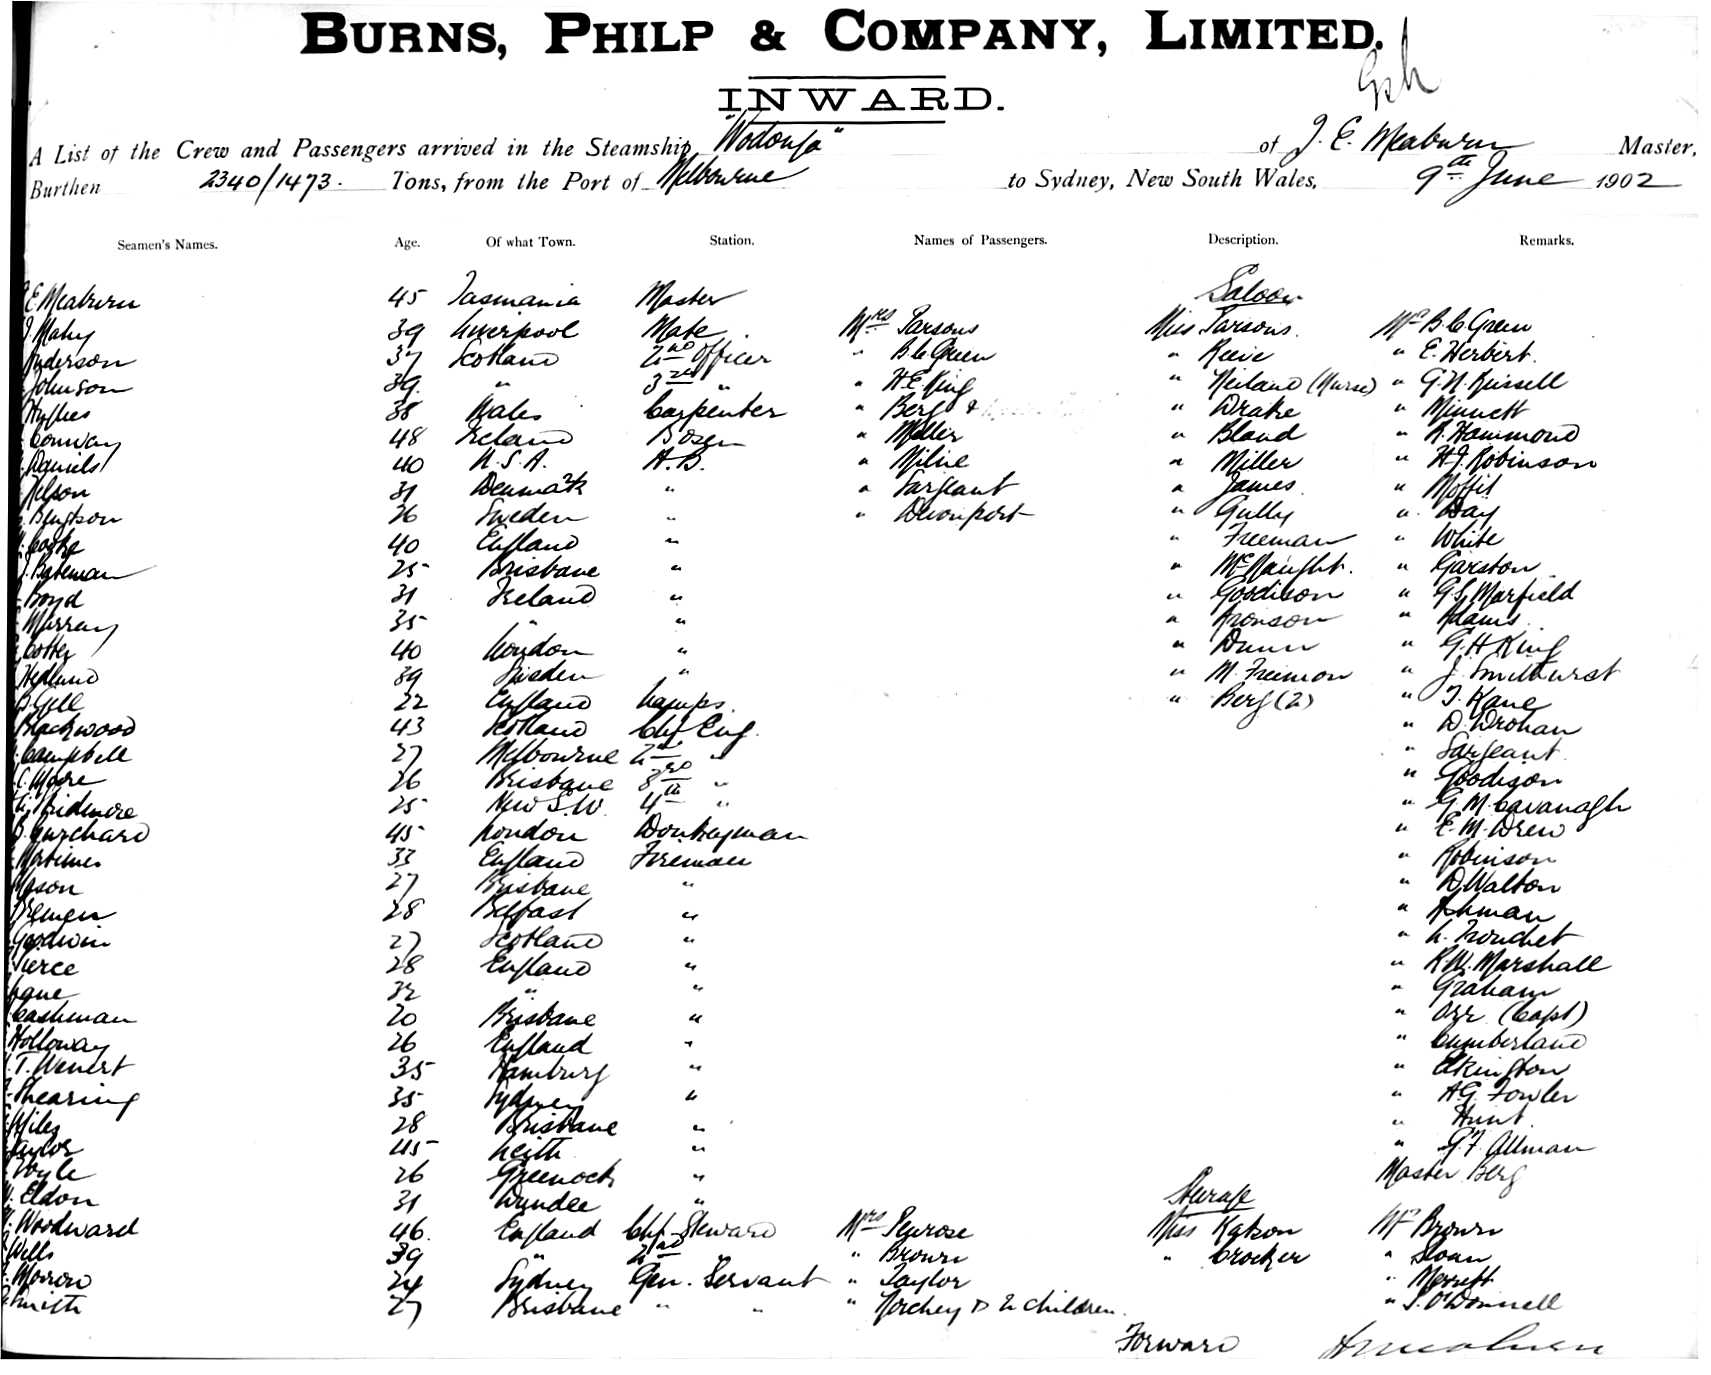 BURNS, PHILP & COMPANY, LIMITED.
INWARD.
A List of the Crew and Passengers arrived in the Steamship "Wodonga" of J. E. Meaburn Master,
Burthen 2340/1473. Tons, from the Port of Melbourne to Sydney, New South Wales, 9th June 1902
Seamen's Names. Age. Of what Town. Station. Names of Passengers. Description. Remarks.
Saloon
E Meaburn 45 Tasmania Master
Mahy 39 Liverpool Mate Mrs Parsons Miss Parsons. Mr B. C. Green
Anderson 37 Scotland 2nd Officer " B. C. Green " Reeve " E. Herbert.
Johnson 39. " 3rd " " H. E. King " Neiland (Nurse) " G. N. Russell
Hughes 38 Wales Carpenter " Berg " Drake " Minnett
Conway 48 Ireland Bosen " Miller " Bland " R. Hammond
Daniels 40 U.S.A. A.B. " Milne " Miller " H. J. Robinson
Nelson 31 Denmark " " Sargeant " James " Moffit
Bengtson 26 Sweden " " Devonport " Gully " Day
Cooke 40 England " " Freeman " White
Bateman 25 Brisbane " " McNaught. " Garston
Boyd 31 Ireland " " Goodison " G. S. Marfield
Murray 35 " " " Aronson " Adams
Cotter 40 London " " Dunn " G. H. King
Hedlund 39 Sweden " " M. Freeman " J. Smithurst
Gill 22 England Lamps. " Berg (2) " T. Kane
Blackwood 43 Scotland Chf Eng. " D. Drohan
Campbell 27 Melbourne 2nd " " Sargeant
C. Moore 26 Brisbane 3rd " " Goodison
Pridmore 25 New S. W. 4th " " G. M. Cavanagh
Burchard 45 London Donkeyman " E. M. Drew
Mortimer 33 England Fireman " Robinson
Mason 27 Brisbane " " D. Walton
28 Belfast " " Ahman
Goodwin 27 Scotland " " L. Trouchet
Pierce 28 England " " R. W. Marshall
Lane 32 " " " Graham
Cashman 20 Brisbane " " Orr (Capt)
Holloway 26 England " " Cumberland
T. Wenert 35 Hamburg " " Elkington
Shearing 35 Sydney " " A. G. Fowler
Miles 28 Brisbane " " Hunt
Taylor 45 Leith " " G. F. Allman
Doyle 26 Greenock " Master Berg
Eldon 31 Dundee " Steerage
Woodward 46. England Chf. Steward Mrs Penrose Miss Watson Mr Brown
Wells 39 " 2nd " Brown " Crocker " Doan
Morrow 24 Sydney Gen. Servant " Taylor " Merrett
Smith 27 Brisbane " " " Norchey & 2 children. " J. O'Donnell
Forward